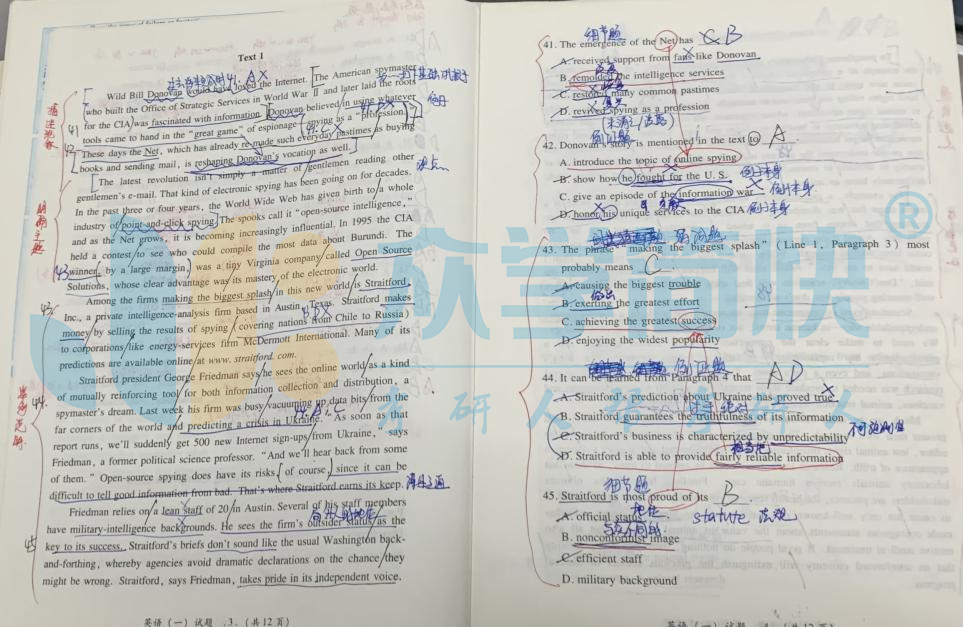 Text 1
Wild Bill Donovan would have loved the Internet. The American spymaster
who built the Office of Strategic Services in World War Ⅱ and later laid the roots
for the CIA was fascinated with information. Donovan believed in using whatever
tools came to hand in the "great game" of espionage (spying as a "profession.")
These days the Net, which has already re-made such everyday pastimes as buying
books and sending mail, is reshaping Donovan's vocation as well.
The latest revolution isn't simply a matter of gentlemen reading other
gentlemen's e-mail. That kind of electronic spying has been going on for decades.
In the past three or four years, the World Wide Web has given birth to a whole
industry of point-and-click spying. The spooks call it "open-source intelligence,"
and as the Net grows, it is becoming increasingly influential. In 1995 the CIA
held a contest to see who could compile the most data about Burundi. The
winner, by a large margin, was a tiny Virginia company called Open Source
Solutions, whose clear advantage was its mastery of the electronic world.
Among the firms making the biggest splash in this new world is Straitford,
Inc., a private intelligence-analysis firm based in Austin, Texas. Straitford makes
money by selling the results of spying (covering nations from Chile to Russia)
to corporations like energy-services firm McDermott International. Many of its
predictions are available online at www. straitford. com.
Straitford president George Friedman says he sees the online world as a kind
of mutually reinforcing tool for both information collection and distribution, a
spymaster's dream. Last week his firm was busy vacuuming up data bits from the
far corners of the world and predicting a crisis in Ukraine. "As soon as that
report runs, we'll suddenly get 500 new Internet sign-ups from Ukraine," says
Friedman, a former political science professor. "And we'll hear back from some
of them. " Open-source spying does have its risks, of course, since it can be
difficult to tell good information from bad. That's where Straitford earns its keep.
Friedman relies on a lean staff of 20 in Austin. Several of his staff members
have military-intelligence backgrounds. He sees the firm's outsider status as the
key to its success. Straitford's briefs don't sound like the usual Washington back-
and-forthing, whereby agencies avoid dramatic declarations on the chance they
might be wrong. Straitford, says Friedman, takes pride in its independent voice.
英语(一)试题 .3. (共12页)
细节题
41. The emergence of the Net has B
A. received support from fans like Donovan
B. remolded the intelligence services
C. restored many common pastimes
D. revived spying as a profession
例证题
42. Donovan's story is mentioned in the text to A.
A. introduce the topic of online spying
B. show how he fought for the U. S. 例子本身
C. give an episode of the information war 例子本身
D. honor his unique services to the CIA 例子本身
43. The phrase "making the biggest splash" (Line 1, Paragraph 3) most
probably means C.
A. causing the biggest trouble
B. exerting the greatest effort
C. achieving the greatest success
D. enjoying the widest popularity
例证题
44. It can be learned from Paragraph 4 that A D
A. Straitford's prediction about Ukraine has proved true
B. Straitford guarantees the truthfulness of its information
C. Straitford's business is characterized by unpredictability 不可预测性
D. Straitford is able to provide fairly reliable information
细节题
45. Straitford is most proud of its B
A. official status 地位 statute 法规
B. nonconformist image
C. efficient staff
D. military background